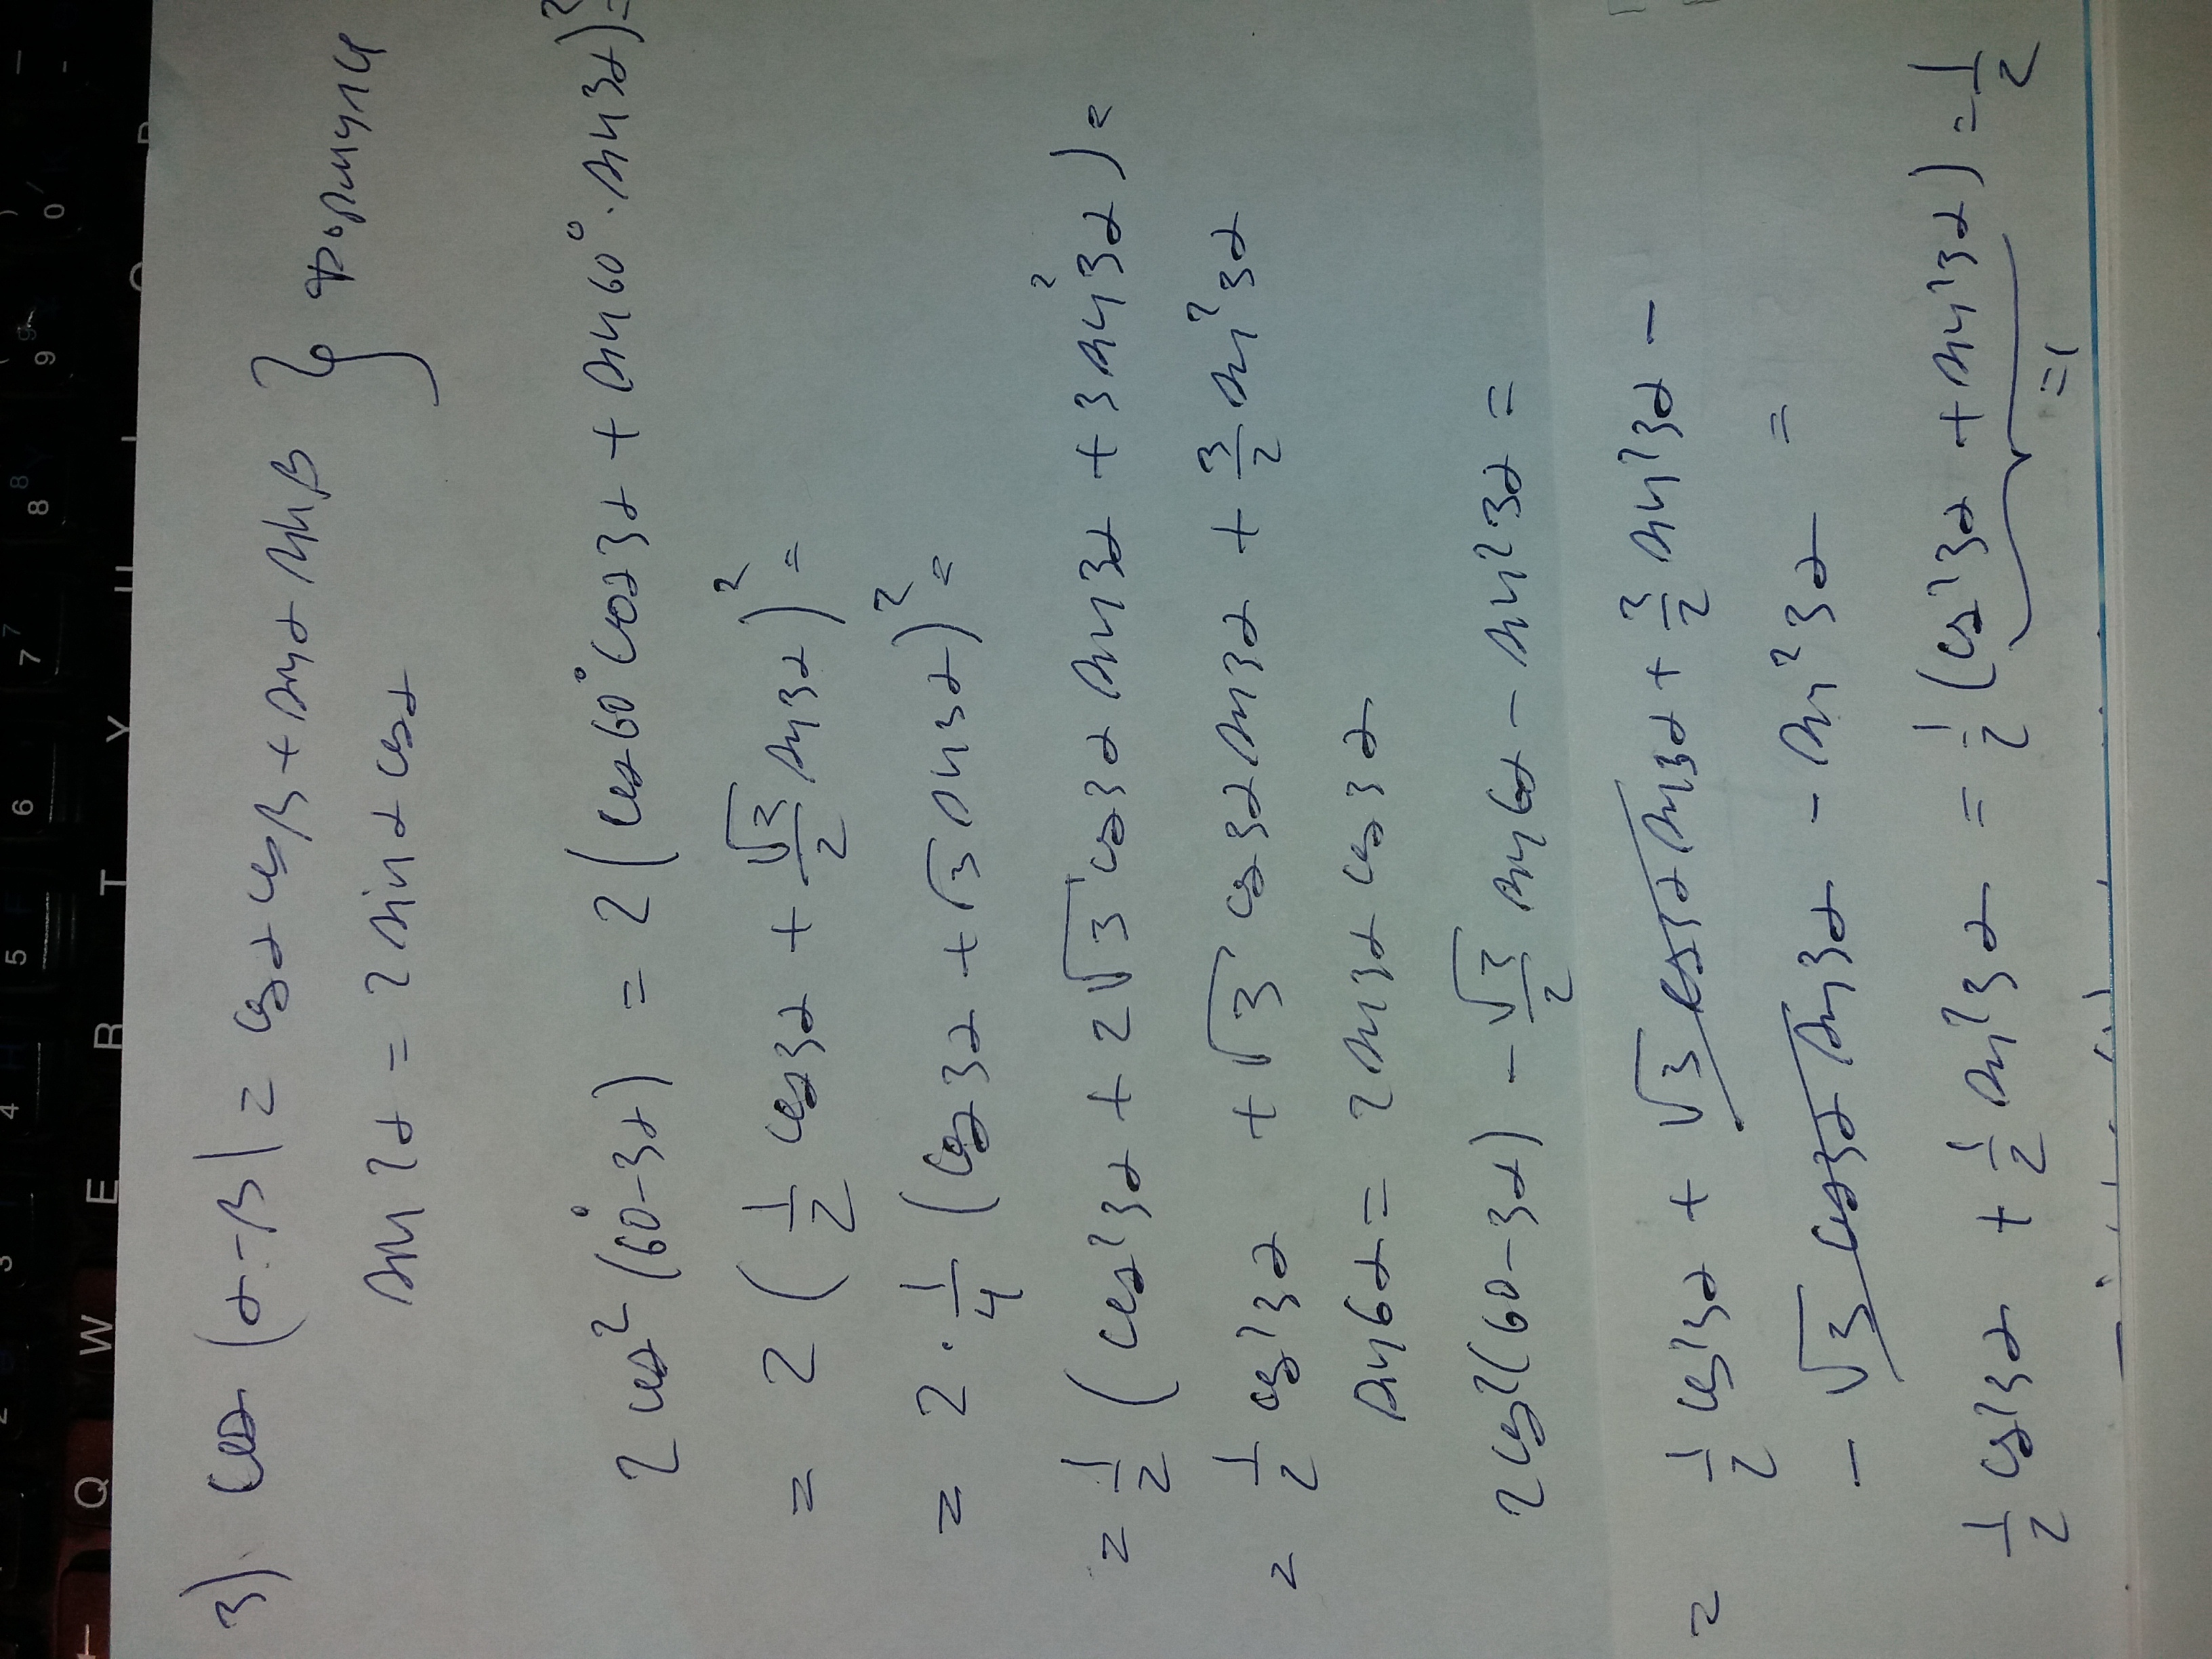 3) cos (α-β) = cosα cosβ + sinα sinβ } формули
sin 2α = 2 sinα cosα
2 cos² (60°-3α) = 2 (cos60° cos3α + sin60° · sin3α)² =
= 2 ( 1/2 cos3α + √3/2 sin3α )² =
= 2 · 1/4 (cos3α + √3 sin3α)² =
= 1/2 ( cos²3α + 2√3 cos3α sin3α + 3 sin²3α ) =
= 1/2 cos²3α + √3 cos3α sin3α + 3/2 sin²3α
sin6α = 2 sin3α cos3α
2cos²(60-3α) - √3/2 sin6α - sin²3α =
= 1/2 cos²3α + √3 cos3α sin3α + 3/2 sin²3α -
- √3 cos3α sin3α - sin²3α =
1/2 cos²3α + 1/2 sin²3α = 1/2 (cos²3α + sin²3α) = 1/2
=1